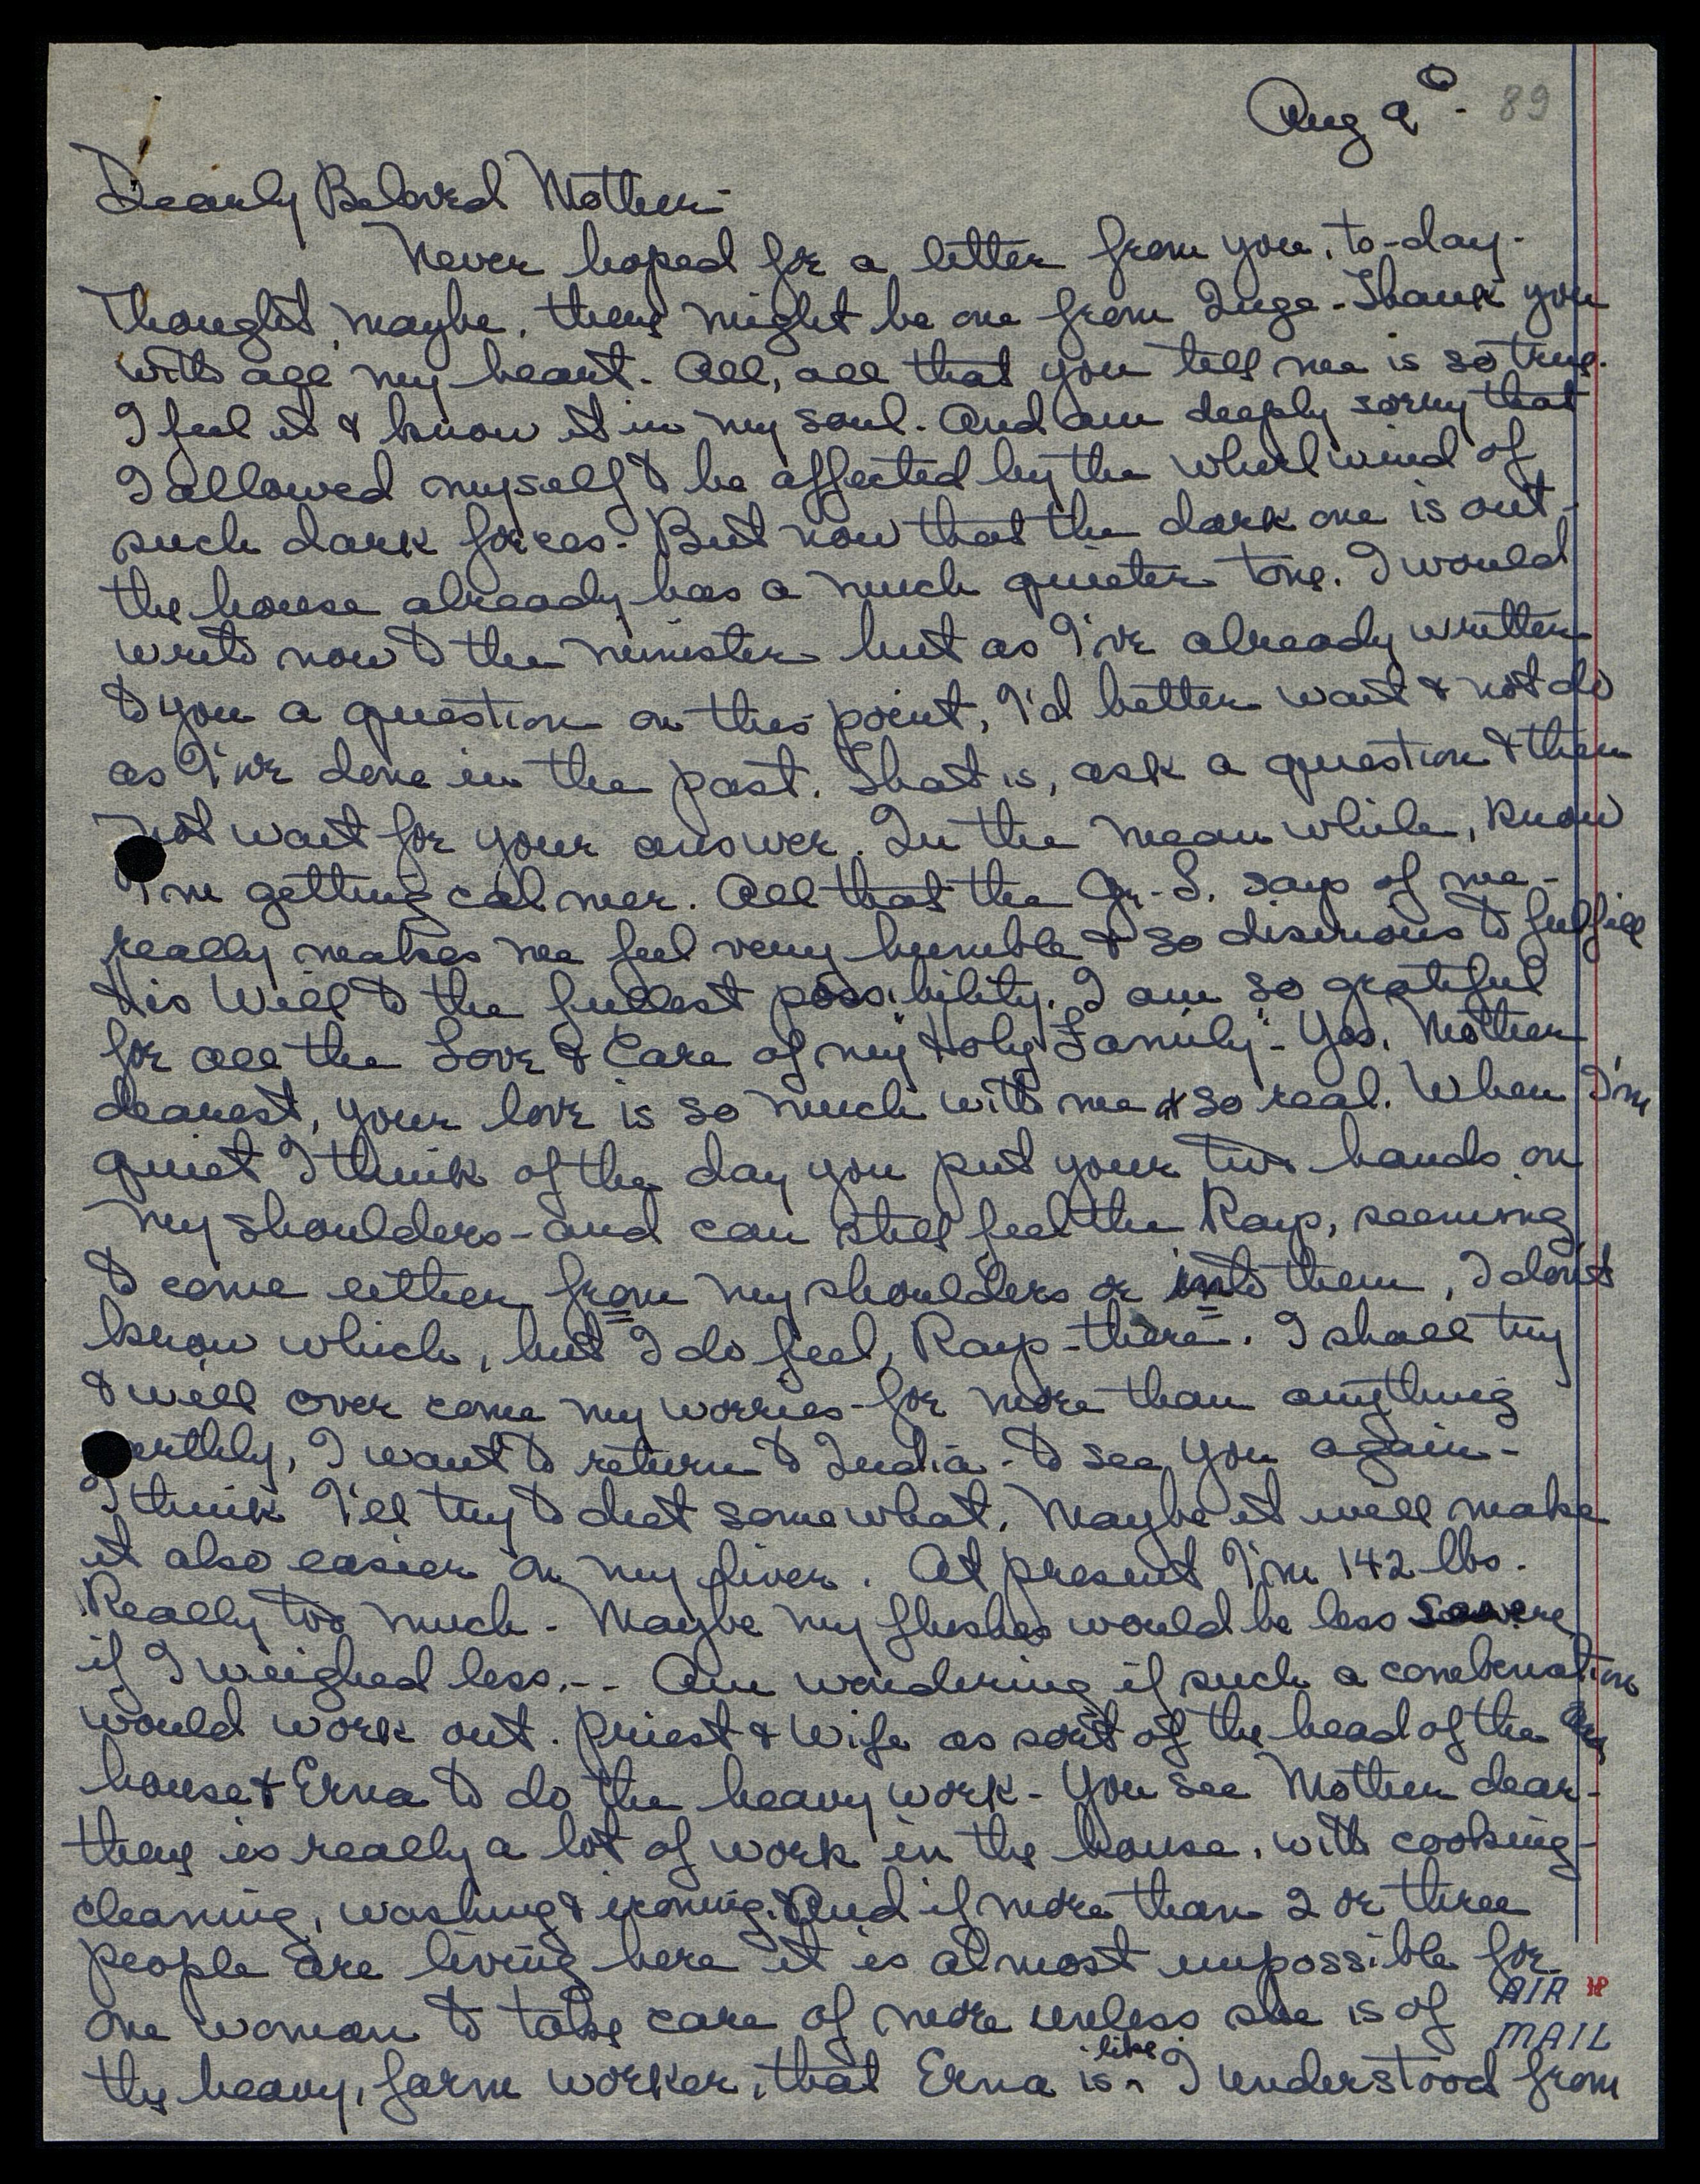 Aug 9th. 89
Dearly Beloved Mother-
Never hoped for a letter from you, to-day.
Thought, maybe, there might be one from Inge - Thank you
with all my heart. All, all that you tell me is so true.
I feel it & know it in my soul. And am deeply sorry that
I allowed myself to be affected by the whirlwind of
such dark forces. But now that the dark one is out-
the house already has a much quieter tone. I would
write now to the minister but as I've already written
to you a question on this point, I'd better wait & not do
as I've done in the past. That is, ask a question & then
not wait for your answer. In the mean while, know
I'm getting calmer. All that the Gr.-L. says of me-
really makes me feel very humble & so desirious to fulfill
His Will to the fullest possibility. I am so grateful
for all the Love & Care of my "Holy Family". Yes, Mother
dearest, your love is so much with me & so real. When I'm
quiet I think of the day you put your two hands on
my shoulders - and can still feel the Rays, seeming
to come either from my shoulders or into them, I don't
know which, but I do feel, Rays - there. I shall try
& will over come my worries - for more than anything
earthly, I want to return to India - to see you again -
I think I'll try to diet somewhat. Maybe it will make
it also easier on my liver. At present I'm 142 lbs.
Really too much. Maybe my flushes would be less severe
if I weighed less. -- Am wondering if such a combination
would work out. Priest & Wife as sort of the head of the
house & Erna to do the heavy work - You see Mother dear-
there is really a lot of work in the house, with cooking-
cleaning, washing & ironing. And if more than 2 or three
people are living here it is almost impossible for
one woman to take care of more unless she is of
the heavy, farm worker, that Erna is like. I understood from
AIR
MAIL